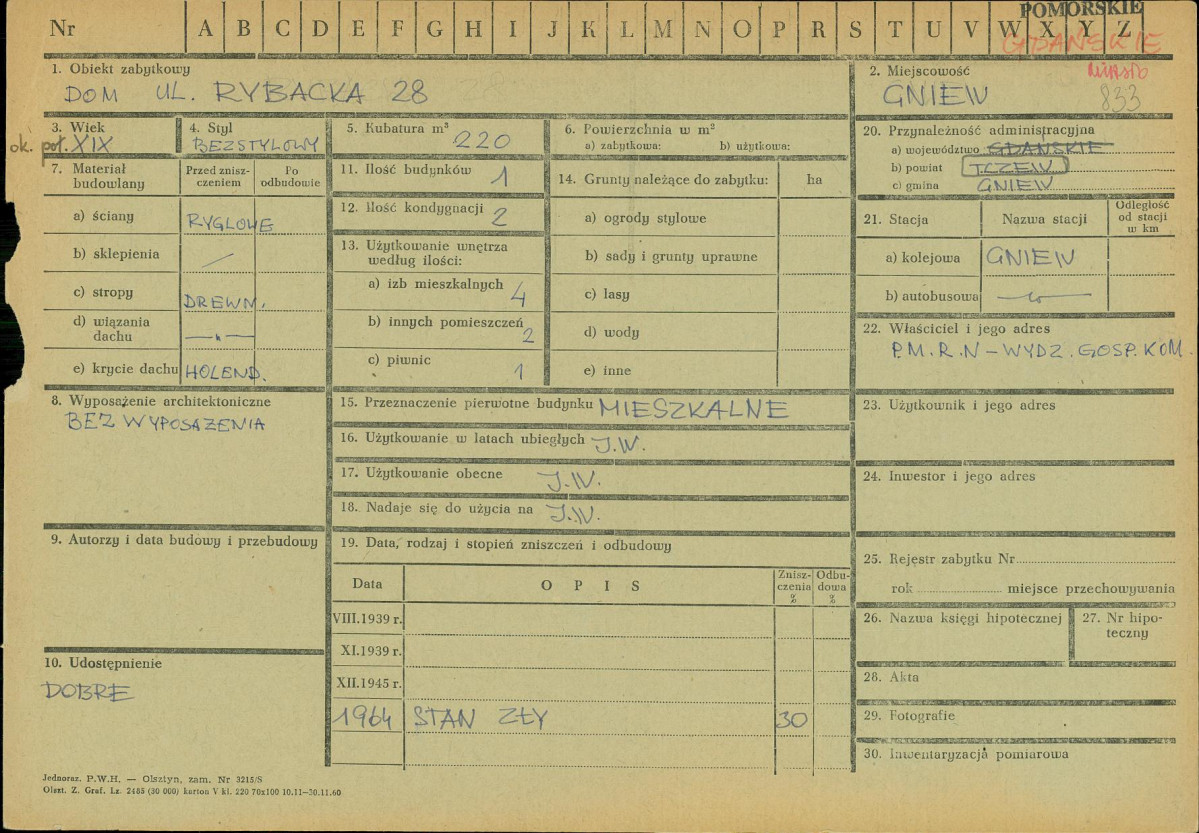 POMORSKIE
Nr A B C D E F G H I J K L M N O P R S T U V W X Y Z
GDAŃSKIE
1. Obiekt zabytkowy
DOM UL. RYBACKA 28
2. Miejscowość
miasto
GNIEW
833
3. Wiek
ok. poł. XIX
4. Styl
BEZSTYLOWY
5. Kubatura m³
220
6. Powierzchnia w m²
a) zabytkowa: b) użytkowa:
20. Przynależność administracyjna
a) województwo GDAŃSKIE
b) powiat TCZEW
c) gmina GNIEW
7. Materiał budowlany
Przed znisz-
czeniem
Po
odbudowie
a) ściany RYGLOWE
b) sklepienia —
c) stropy DREWN.
d) wiązania
dachu —"—
e) krycie dachu HOLEND.
11. Ilość budynków 1
12. Ilość kondygnacji 2
13. Użytkowanie wnętrza
według ilości:
a) izb mieszkalnych 4
b) innych pomieszczeń 2
c) piwnic 1
14. Grunty należące do zabytku: ha
a) ogrody stylowe
b) sady i grunty uprawne
c) lasy
d) wody
e) inne
21. Stacja Nazwa stacji
Odległość
od stacji
w km
a) kolejowa GNIEW
b) autobusowa
22. Właściciel i jego adres
P.M.R.N – WYDZ. GOSP. KOM.
8. Wyposażenie architektoniczne
BEZ WYPOSAŻENIA
15. Przeznaczenie pierwotne budynku MIESZKALNE
16. Użytkowanie w latach ubiegłych J.W.
17. Użytkowanie obecne J.W.
18. Nadaje się do użycia na J.W.
23. Użytkownik i jego adres
24. Inwestor i jego adres
9. Autorzy i data budowy i przebudowy
19. Data, rodzaj i stopień zniszczeń i odbudowy
Data O P I S
Znisz-
czenia
%
Odbu-
dowa
%
VIII.1939 r.
XI.1939 r.
XII.1945 r.
1964 STAN ZŁY 30
25. Rejestr zabytku Nr
rok miejsce przechowywania
26. Nazwa księgi hipotecznej
27. Nr hipo-
teczny
10. Udostępnienie
DOBRE
28. Akta
29. Fotografie
30. Inwentaryzacja pomiarowa
Jednoraz. P.W.H. — Olsztyn, zam. Nr 3215/S
Olszt. Z. Graf. Lz. 2485 (30 000) karton V kl. 220 70x100 10.11—30.11.60